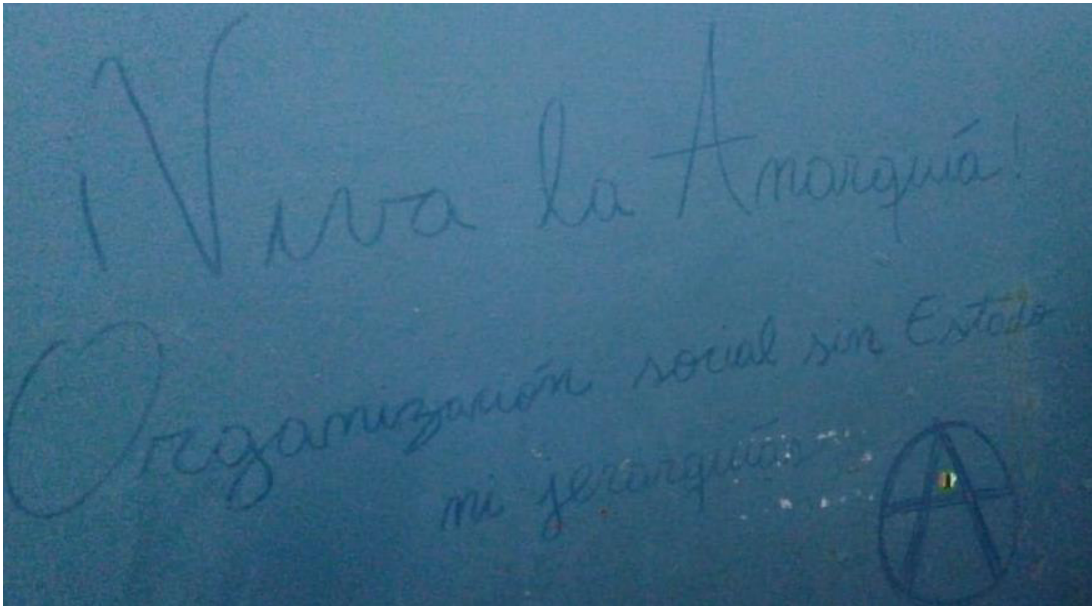 ¡Viva la Anarquía!
Organización social sin Estado
ni jerarquías